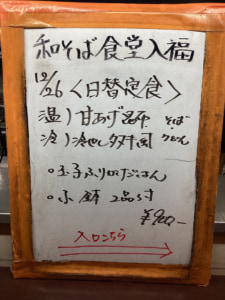 和そば食堂入福
12/26 〈日替定食〉
温) 甘あげ そば
冷) 冷やし 風 うどん
。玉子ふりかけごはん
。小鉢 2品付
¥900-
入口こちら